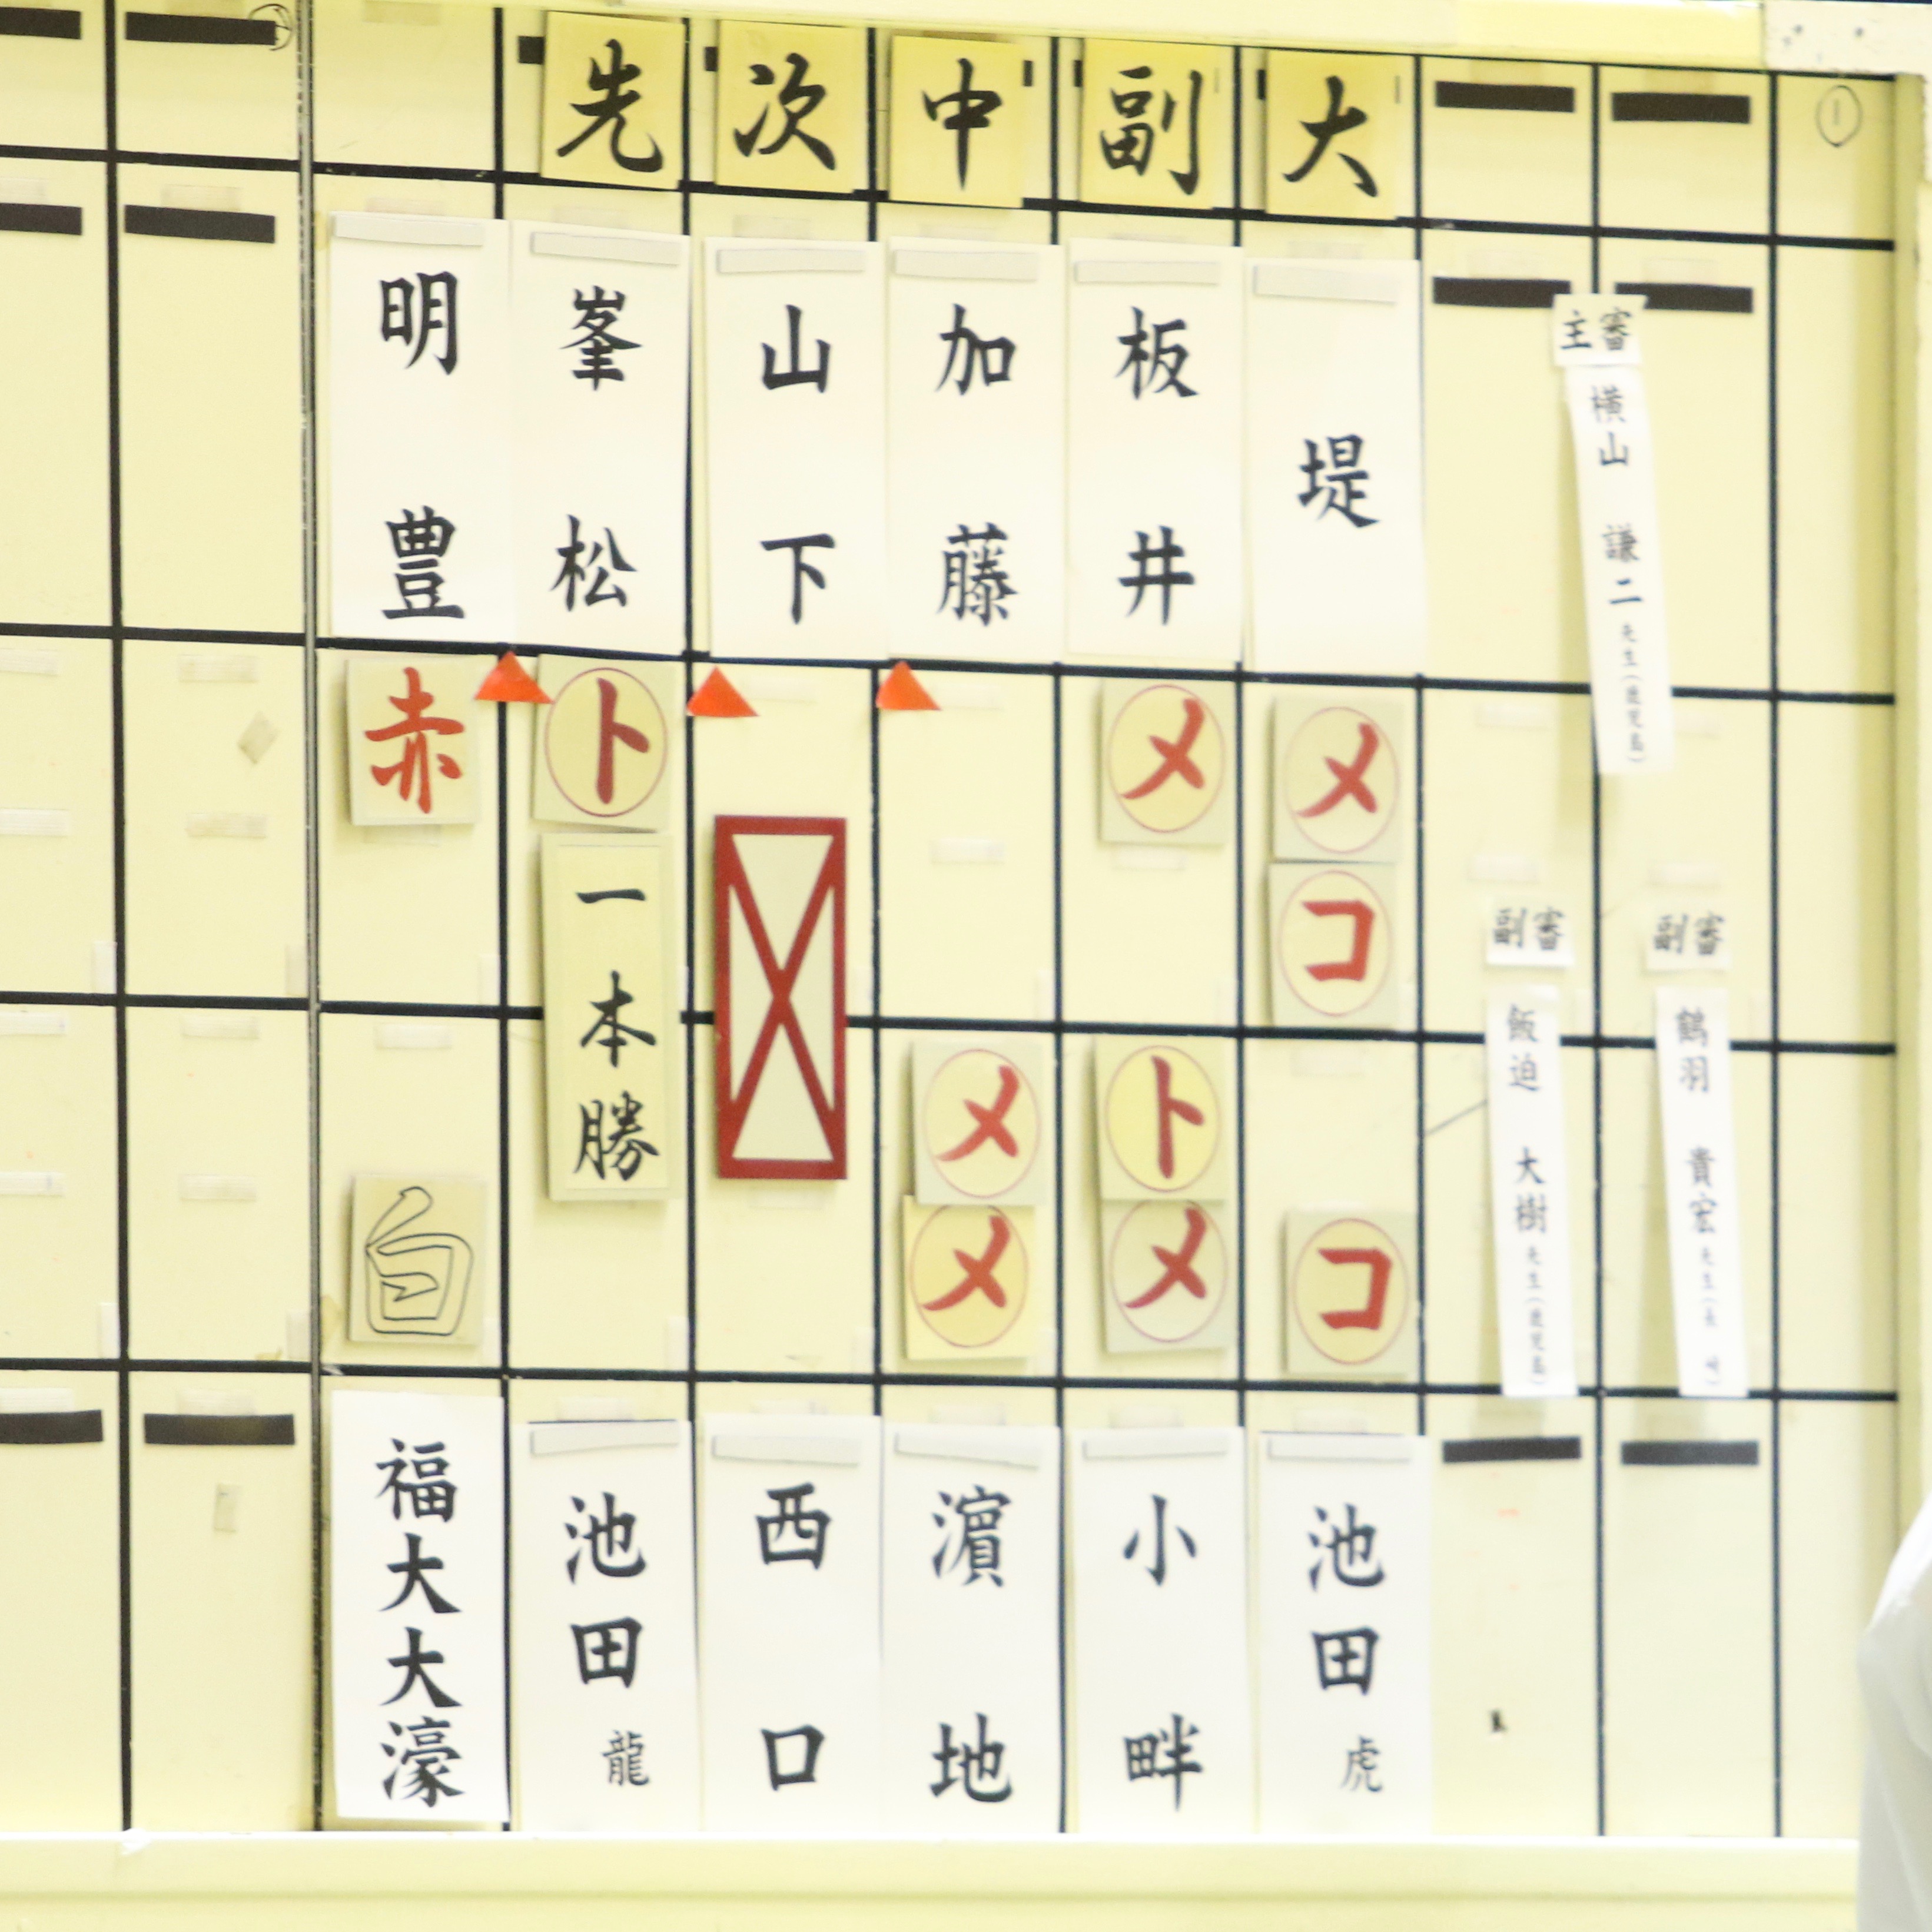 先
次
中
副
大
明豊
峯松
山下
加藤
板井
堤
主審
横山 謙二 先生(鹿児島)
赤
ト
メ
メ
コ
一本勝
副審
飯迫 大樹 先生(鹿児島)
副審
鶴羽 貴宏 先生(長崎)
白
メ
メ
ト
メ
コ
福大大濠
池田 龍
西口
濵地
小畔
池田 虎